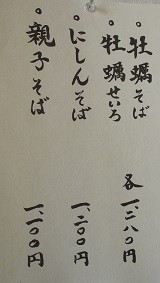 。牡蠣そば
。牡蠣せいろ
各一、二八〇円
。にしんそば
一、二〇〇円
。親子そば
一、一〇〇円